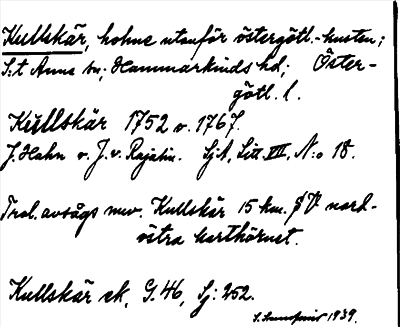 Kullskär, holme utanför östergötl.-kusten;
S:t Anna sn; Hammarkinds hd; Öster-
götl. l.
Kullskär 1752 o. 1767.
J. Hahn o. J. v. Rajalin. SjA, Litt. VII, N:o 18.
Trol. avsågs nuv. Kullskär 15 km. f V nord-
östra karthörnet.
Kullskär ek, G. 46, Sj: 252.
1939.